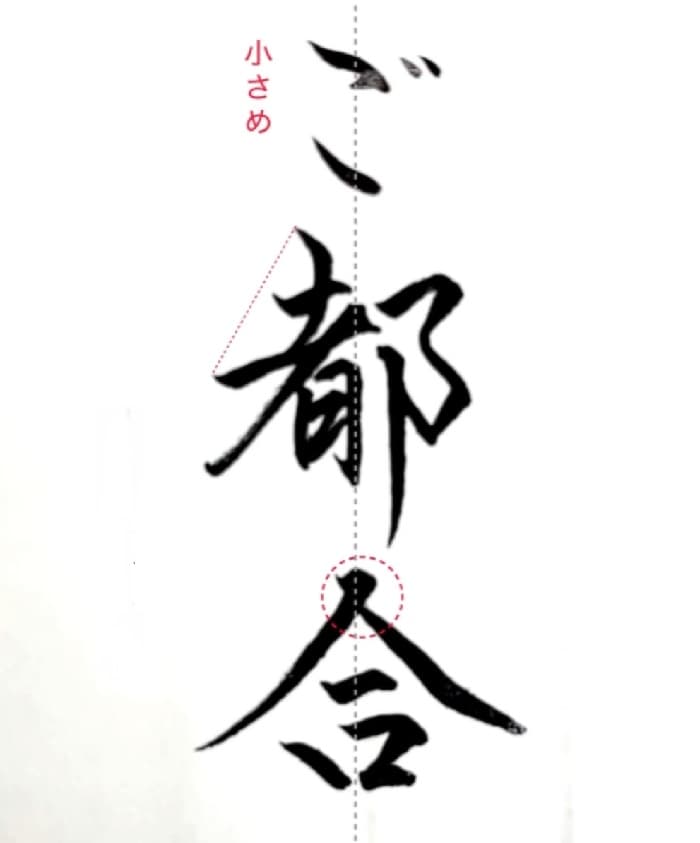 ご都合
小さめ